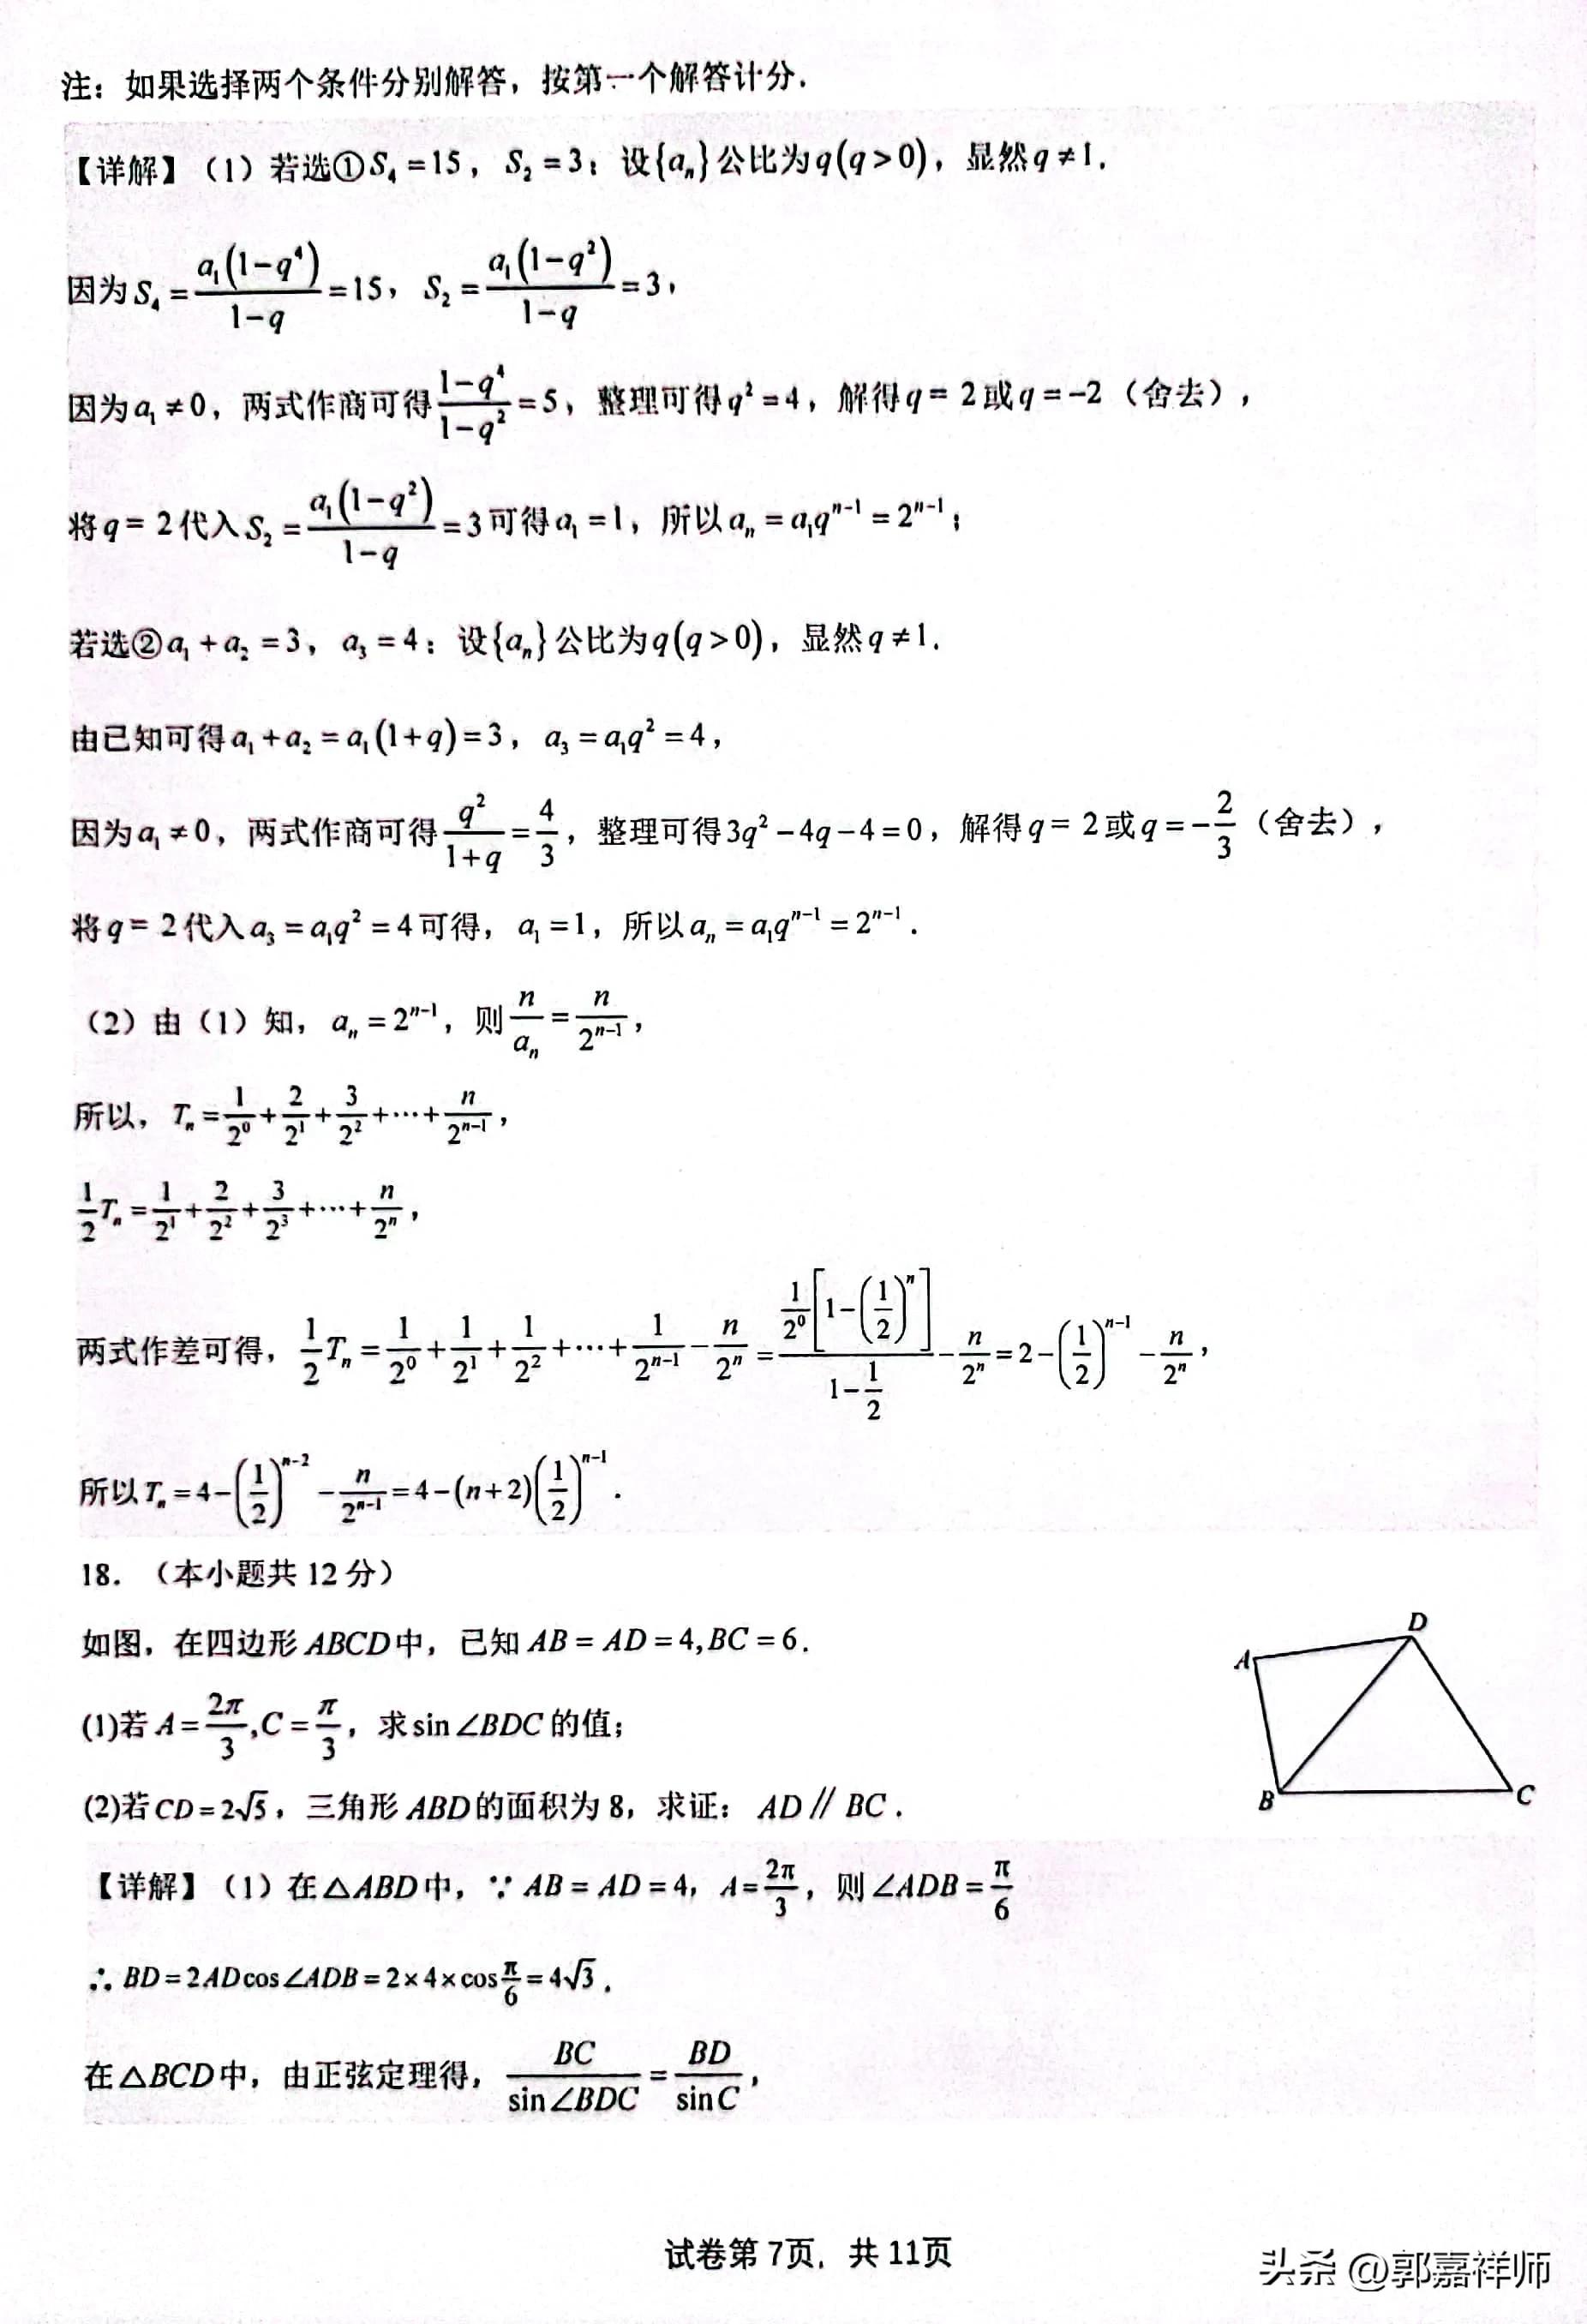 注：如果选择两个条件分别解答，按第一个解答计分．
【详解】（1）若选①S₄=15，S₂=3：设{aₙ}公比为q(q>0)，显然q≠1．
因为S₄=a₁(1-q⁴)/(1-q)=15，S₂=a₁(1-q²)/(1-q)=3，
因为a₁≠0，两式作商可得(1-q⁴)/(1-q²)=5，整理可得q²=4，解得q=2或q=-2（舍去），
将q=2代入S₂=a₁(1-q²)/(1-q)=3可得a₁=1，所以aₙ=a₁qⁿ⁻¹=2ⁿ⁻¹；
若选②a₁+a₂=3，a₃=4：设{aₙ}公比为q(q>0)，显然q≠1．
由已知可得a₁+a₂=a₁(1+q)=3，a₃=a₁q²=4，
因为a₁≠0，两式作商可得q²/(1+q)=4/3，整理可得3q²-4q-4=0，解得q=2或q=-2/3（舍去），
将q=2代入a₃=a₁q²=4可得，a₁=1，所以aₙ=a₁qⁿ⁻¹=2ⁿ⁻¹．
（2）由（1）知，aₙ=2ⁿ⁻¹，则n/aₙ=n/2ⁿ⁻¹，
所以，Tₙ=1/2⁰+2/2¹+3/2²+⋯+n/2ⁿ⁻¹，
1/2Tₙ=1/2¹+2/2²+3/2³+⋯+n/2ⁿ，
两式作差可得，1/2Tₙ=1/2⁰+1/2¹+1/2²+⋯+1/2ⁿ⁻¹-n/2ⁿ=1/2⁰[1-(1/2)ⁿ]/(1-1/2)-n/2ⁿ=2-(1/2)ⁿ⁻¹-n/2ⁿ，
所以Tₙ=4-(1/2)ⁿ⁻²-n/2ⁿ⁻¹=4-(n+2)(1/2)ⁿ⁻¹．
18．（本小题共12分）
如图，在四边形ABCD中，已知AB=AD=4,BC=6．
(1)若A=2π/3,C=π/3，求sin∠BDC的值；
(2)若CD=2√5，三角形ABD的面积为8，求证：AD∥BC．
D
A
B
C
【详解】（1）在△ABD中，∵AB=AD=4，A=2π/3，则∠ADB=π/6
∴BD=2ADcos∠ADB=2×4×cosπ/6=4√3．
在△BCD中，由正弦定理得，BC/sin∠BDC=BD/sinC，
试卷第7页，共11页
头条@郭嘉祥师